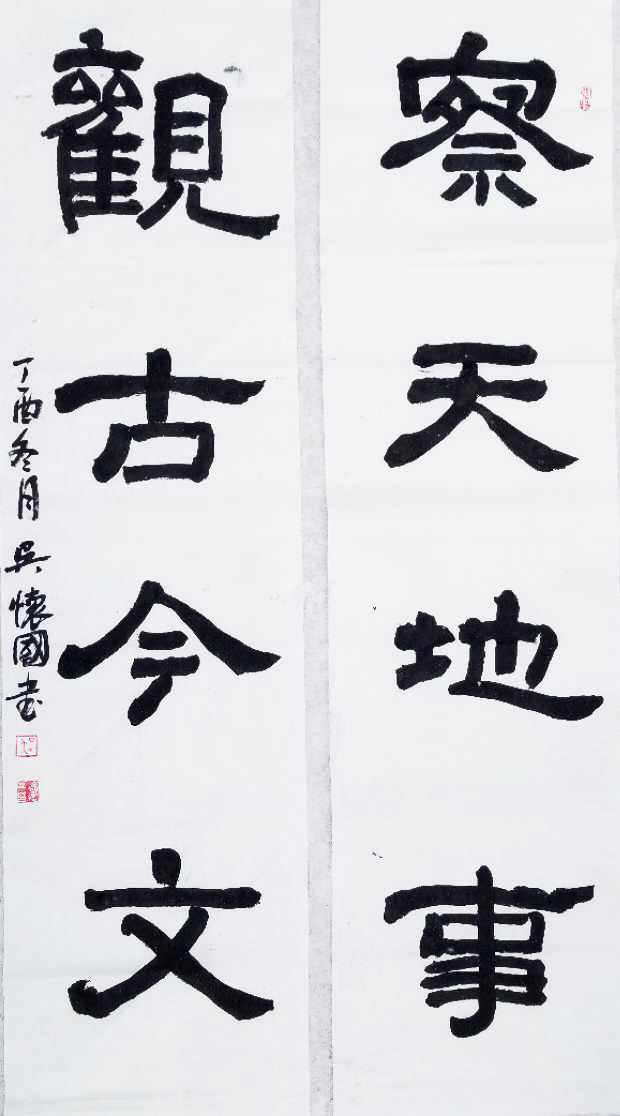 察天地事
觀古今文
丁酉冬月吳懷國书